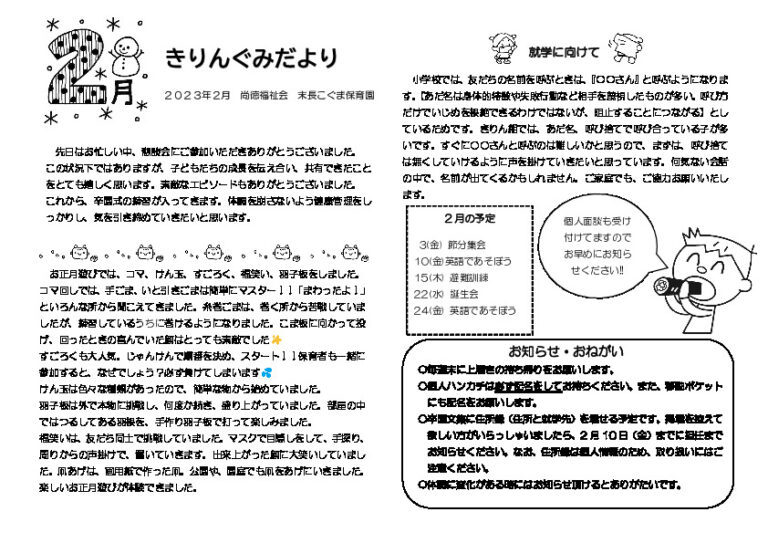 2月
きりんぐみだより
2023年2月　尚徳福祉会　末長こぐま保育園
先日はお忙しい中、懇談会にご参加いただきありがとうございました。
この状況下ではありますが、子どもたちの成長を伝え合い、共有できたこと
をとても嬉しく思います。素敵なエピソードもありがとうございました。
これから、卒園式の練習が入ってきます。体調を崩さないよう健康管理をし
っかりし、気を引き締めていきたいと思います。
お正月遊びでは、コマ、けん玉、すごろく、福笑い、羽子板をしました。
コマ回しでは、手ごま、いと引きごまは簡単にマスター！！「まわったよ！」
といろんな所から聞こえてきました。糸巻ごまは、巻く所から苦戦していま
したが、練習しているうちに巻けるようになりました。こま板に向かって投
げ、回ったときの喜んでいた顔はとっても素敵でした
すごろくも大人気。じゃんけんで順番を決め、スタート！！保育者も一緒に
参加すると、なぜでしょう？必ず負けてしまいます
けん玉は色々な種類があったので、簡単な物から始めていました。
羽子板は外で本物に挑戦し、何度か続き、盛り上がっていました。部屋の中
ではつるしてある羽根を、手作り羽子板で打って楽しみました。
福笑いは、友だち同士で挑戦していました。マスクで目隠しをして、手探り、
周りからの声掛けで、置いていきます。出来上がった顔に大笑いしていまし
た。凧あげは、画用紙で作った凧。公園や、園庭でも凧をあげにいきました。
楽しいお正月遊びが体験できました。
就学に向けて
小学校では、友だちの名前を呼ぶときは、『〇〇さん』と呼ぶようになりま
す。【あだ名は身体的特徴や失敗行動など相手を蔑視したものが多い。呼び方
だけでいじめを根絶できるわけではないが、阻止することにつながる】とし
ているためです。きりん組では、あだ名、呼び捨てで呼び合っている子が多
いです。すぐに〇〇さんと呼ぶのは難しいかと思うので、まずは、呼び捨て
は無くしていけるように声を掛けていきたいと思っています。何気ない会話
の中で、名前が出てくるかもしれません。ご家庭でも、ご協力お願いいたし
ます。
2月の予定
3(金) 節分集会
10(金)英語であそぼう
15(木) 避難訓練
22(水) 誕生会
24(金) 英語であそぼう
個人面談も受け
付けてますので
お早めにお知ら
せください!!
お知らせ・おねがい
〇毎週末に上履きの持ち帰りをお願いします。
〇個人ハンカチは必ず記名をしてお持ちください。また、移動ポケット
にも記名をお願いします。
〇卒園文集に住所録（住所と就学先）を載せる予定です。掲載を控えて
欲しい方がいらっしゃいましたら、2月10日（金）までに担任まで
お知らせください。なお、住所録は個人情報のため、取り扱いにはご
注意ください。
〇体調に変化がある時にはお知らせ頂けるとありがたいです。